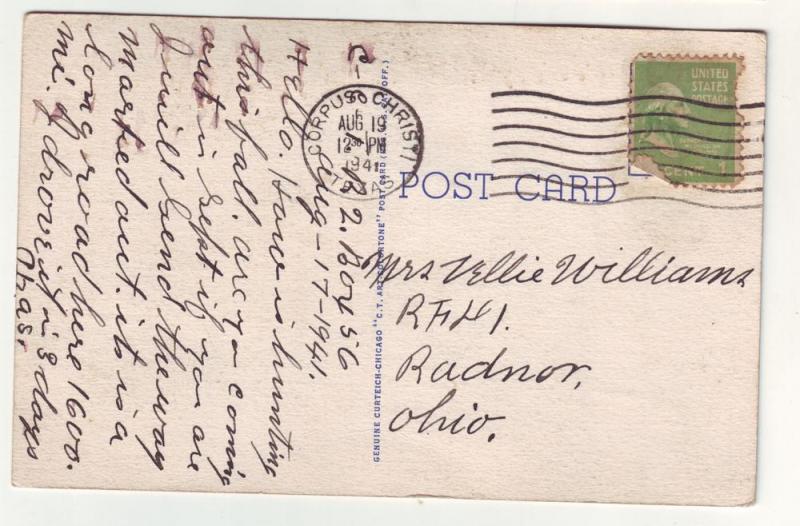 C-C- R 2. Box 56
Aug-17-1941.
Hello. How is hunting
this fall. are yo coming
out in Sept if you are
I will send the way
marked out. it is a
long road here 1600.
mi. I drove it in 3 days
Chas.
CORPUS CHRISTI
AUG 19
12 30 PM
1941
TEXAS
UNITED
STATES
POSTAGE
CENT 1
POST CARD
Mrs Ellie Williams
RFD 1.
Radnor,
Ohio.
GENUINE CURTEICH-CHICAGO "C.T. ART-COLORTONE" POST CARD (REG. U.S. PAT. OFF.)